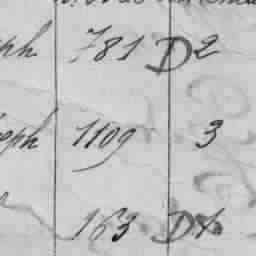 ph 781 D2
eph 1109 3
163 D